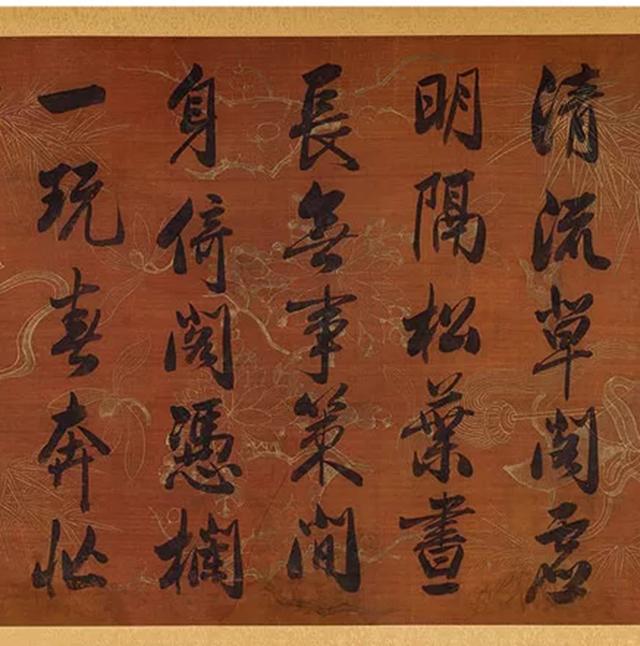 清流草閣虛
明隔松葉晝
長無事策閒
身倚閣憑欄
一玩春奔